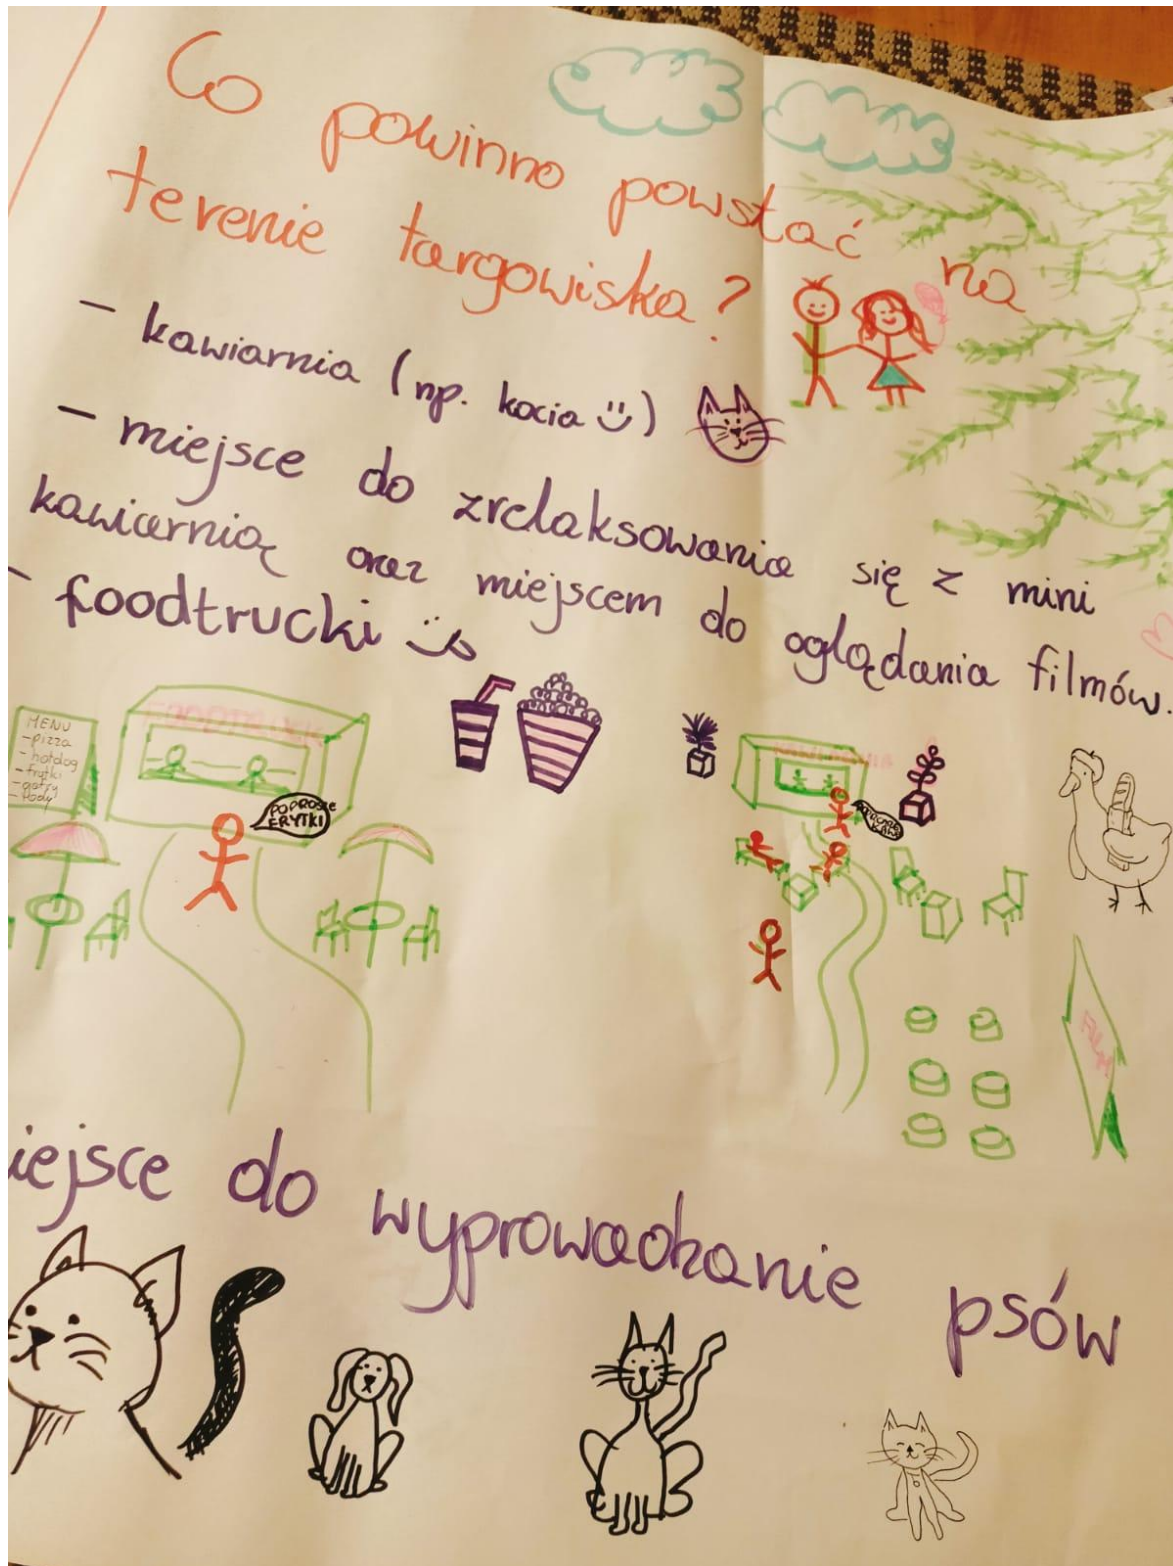 Co powinno powstać na
terenie targowiska?
- kawiarnia (np. kocia)
- miejsce do zrelaksowania się z mini
kawiarnią oraz miejscem do oglądania filmów.
- foodtrucki
MENU
- pizza
- hotdog
- frytki
- gofry
- lody
FOODTRUCK
POPROSZĘ
FRYTKI
FILM
iejsce do wyprowadzanie psów